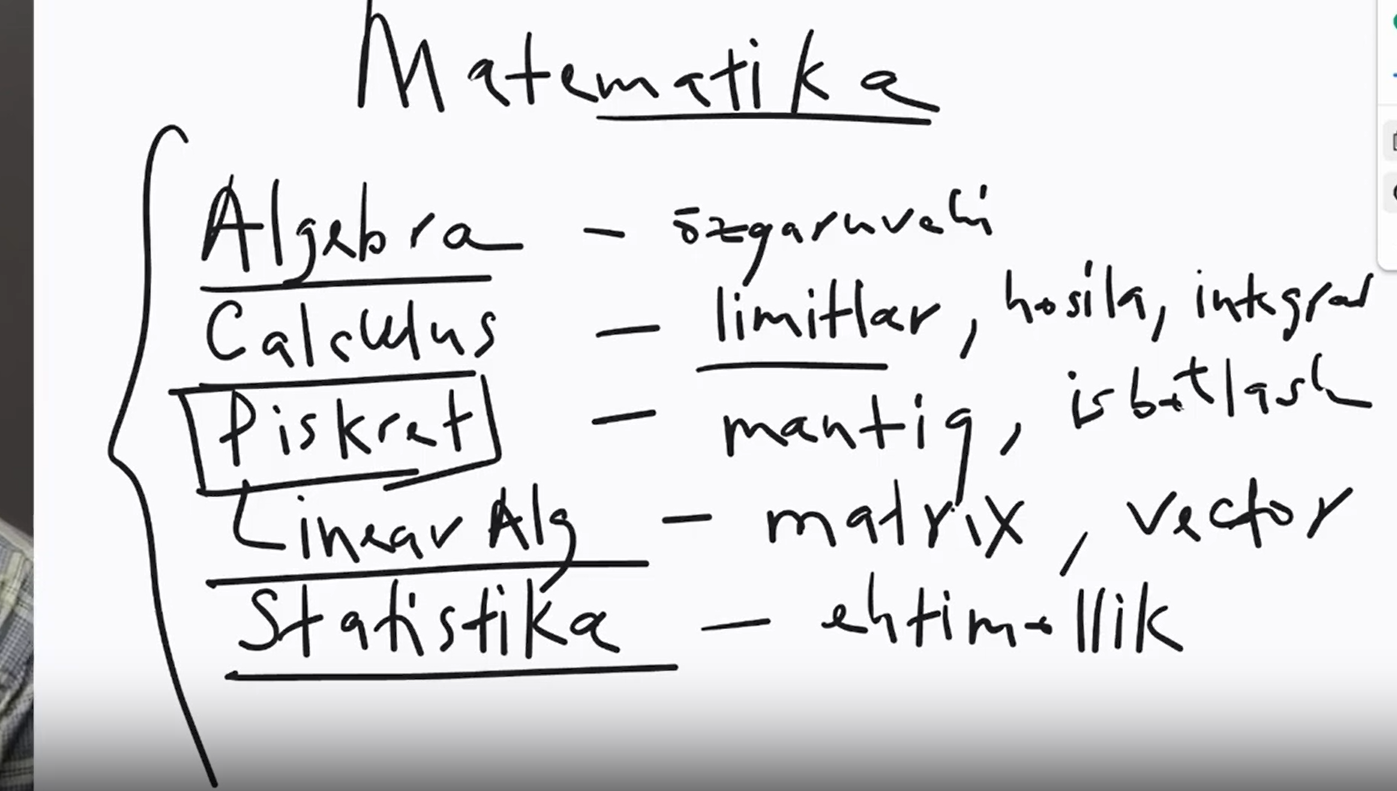 Matematika
Algebra – ōzgaruvchi
Calculus – limitlar, hosila, integral
Diskret – mantiq, isbotlash
Linear Alg – matrix, vector
Statistika – ehtimollik